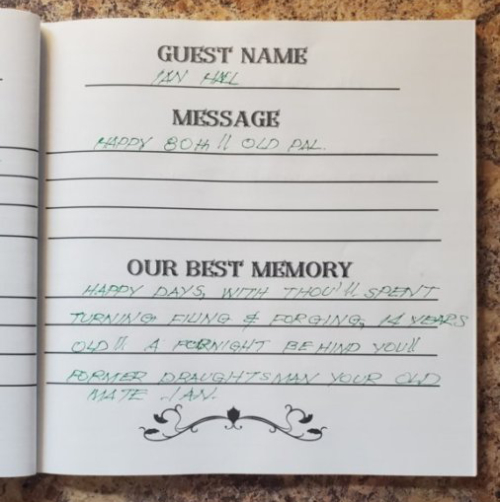 GUEST NAME
IAN HAEL
MESSAGE
HAPPY 80th!! OLD PAL.
OUR BEST MEMORY
HAPPY DAYS, WITH THOU'!! SPENT
TURNING FILING & FORGING, 14 YEARS
OLD!! A FORNIGHT BEHIND YOU!!
FORMER DRAUGHTSMAN YOUR OLD
MATE IAN.